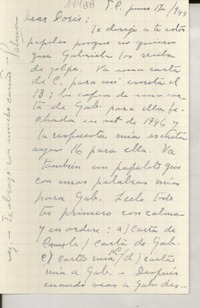 14488 S.P. junio 17/949
Dear Doris: Te dirijo a ti estos
papeles porque no quiero
que Gabriela los reciba
de golpe. Va una carta
de C. para mí escrita el
13; la copia de una car
ta de Gab. para ella fe-
chada en oct de 1946 y
la respuesta mía escrita
ayer 16 para ella. Va
también un papelote que
con unas palabras mías
para Gab. Léelo todo
tu primero con calma
y en orden: a) Carta de
b) carta de Gab.
c) carta mía d) carta
mía a Gab. — Después
cuando veas a Gab des-
Te abraza con mucho cariño — Palma